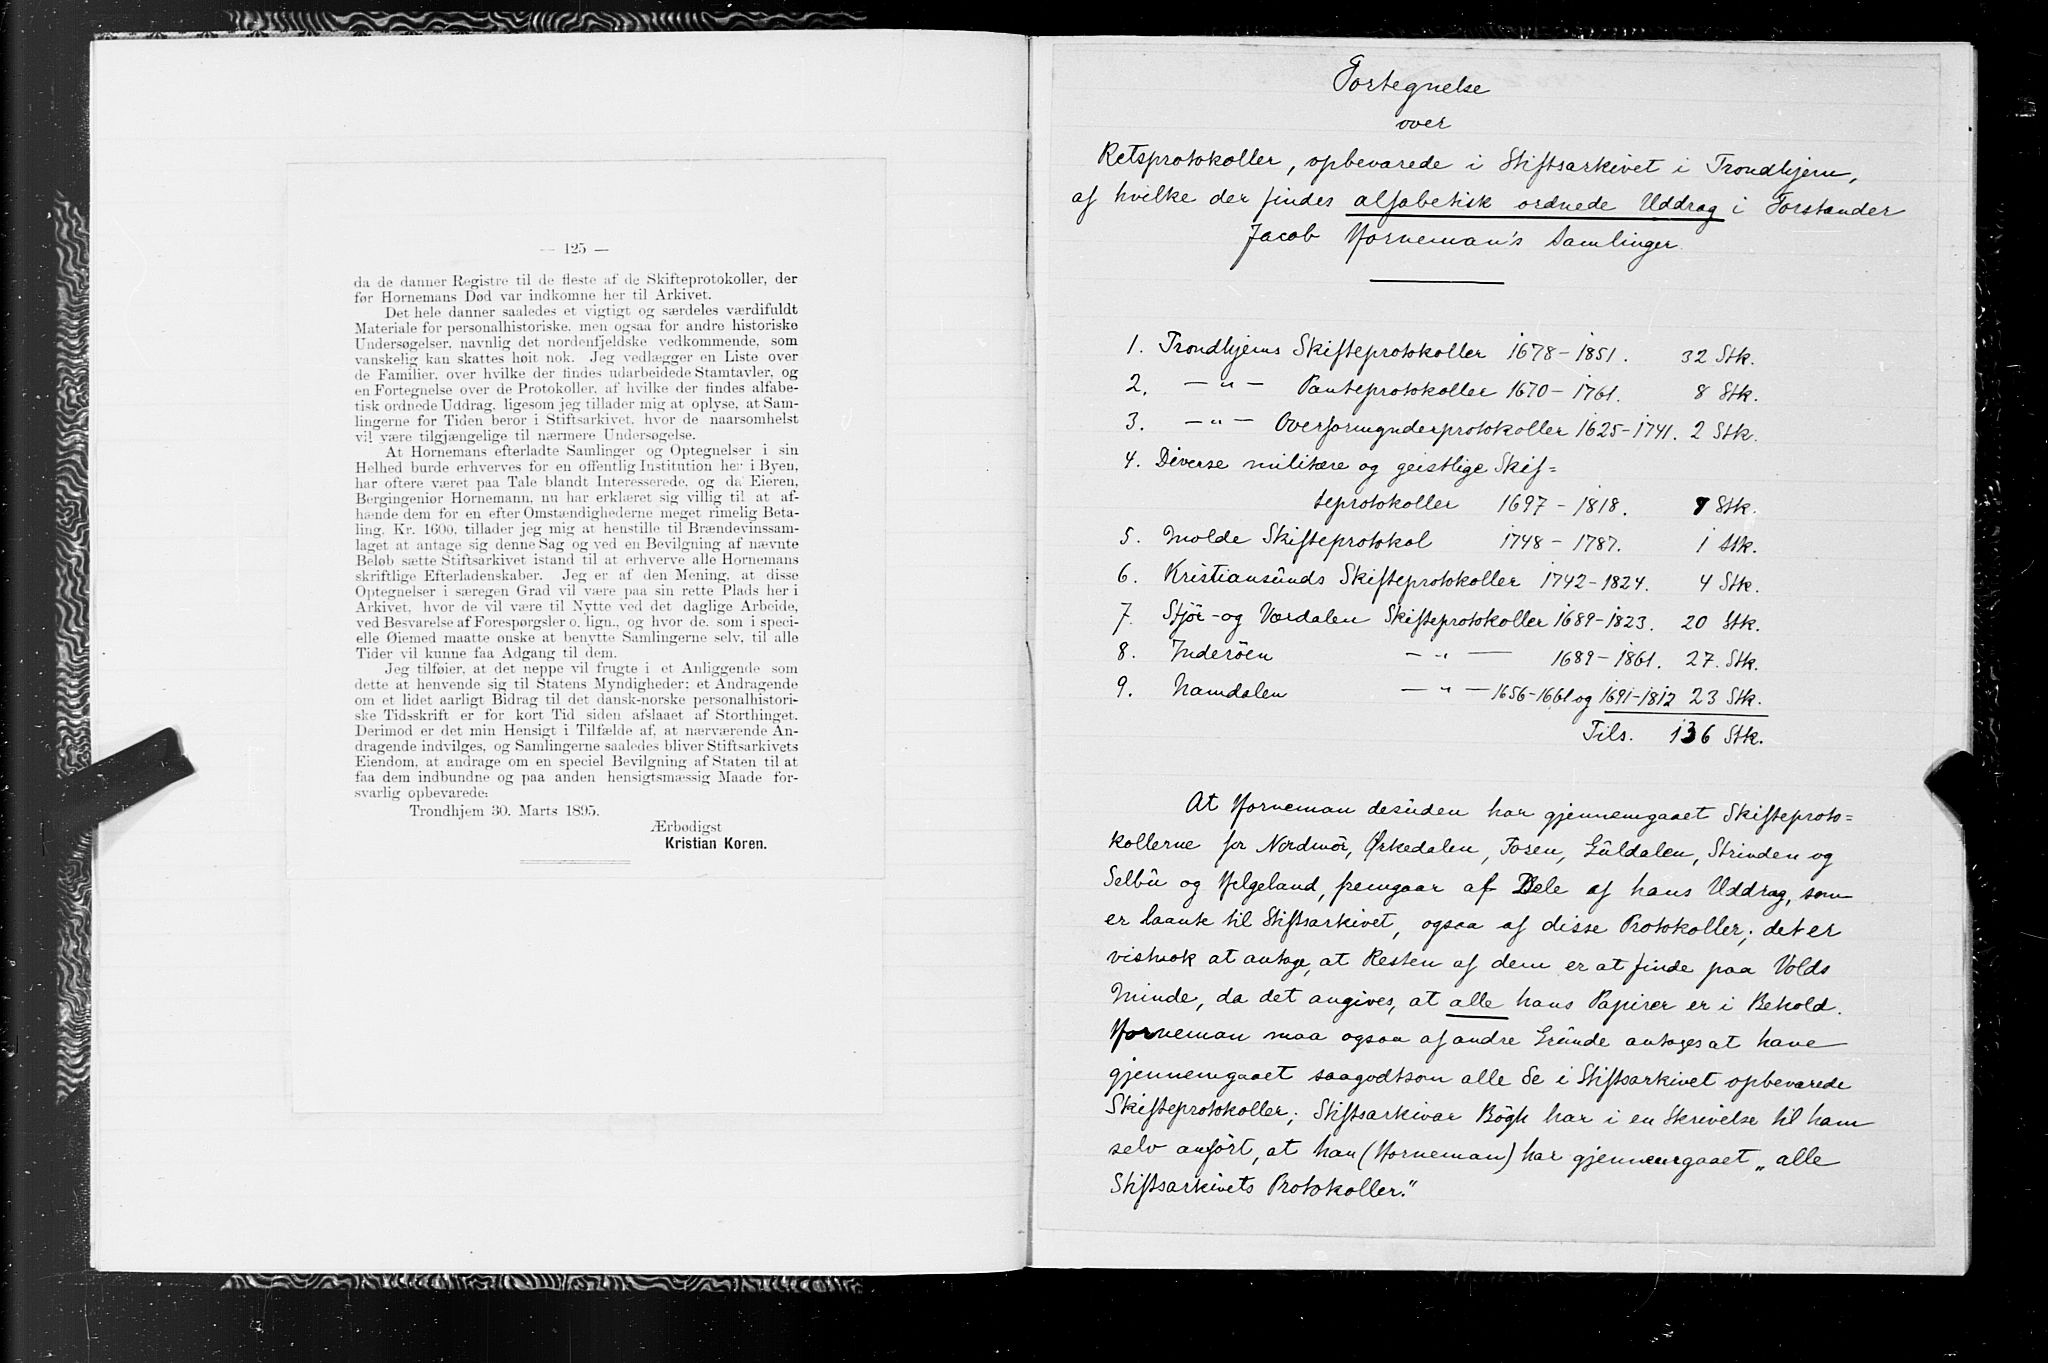 — 125 —
da de danner Registre til de fleste af de Skifteprotokoller, der
før Hornemans Død var indkomne her til Arkivet.
Det hele danner saaledes et vigtigt og særdeles værdifuldt
Materiale for personalhistoriske, men ogsaa for andre historiske
Undersøgelser, navnlig det nordenfjeldske vedkommende, som
vanskelig kan skattes høit nok. Jeg vedlægger en Liste over
de Familier, over hvilke der findes udarbeidede Stamtavler, og
en Fortegnelse over de Protokoller, af hvilke der findes alfabe-
tisk ordnede Uddrag, ligesom jeg tillader mig at oplyse, at Sam-
lingerne for Tiden beror i Stiftsarkivet, hvor de naarsomhelst
vil være tilgjængelige til nærmere Undersøgelse.
At Hornemans efterladte Samlinger og Optegnelser i sin
Helhed burde erhverves for en offentlig Institution her i Byen,
har oftere været paa Tale blandt Interesserede, og da Eieren,
Bergingeniør Hornemann, nu har erklæret sig villig til at af-
hænde dem for en efter Omstændighederne meget rimelig Beta-
ling, Kr. 1600, tillader jeg mig at henstille til Brændevinssam-
laget at antage sig denne Sag og ved en Bevilgning af nævnte
Beløb sætte Stiftsarkivet istand til at erhverve alle Hornemans
skriftlige Efterladenskaber. Jeg er af den Mening, at disse
Optegnelser i særegen Grad vil være paa sin rette Plads her i
Arkivet, hvor de vil være til Nytte ved det daglige Arbeide,
ved Besvarelse af Forespørgsler o. lign., og hvor de, som i speci-
elle Øiemed maatte ønske at benytte Samlingerne selv, til alle
Tider vil kunne faa Adgang til dem.
Jeg tilføier, at det neppe vil frugte i et Anliggende som
dette at henvende sig til Statens Myndigheder; et Andragende
om et lidet aarligt Bidrag til det dansk-norske personalhistori-
ske Tidsskrift er for kort Tid siden afslaaet af Storthinget.
Derimod er det min Hensigt i Tilfælde af, at nærværende An-
dragende indvilges, og Samlingerne saaledes bliver Stiftsarkivets
Eiendom, at andrage om en speciel Bevilgning af Staten til at
faa dem indbundne og paa anden hensigtsmæssig Maade for-
svarlig opbevarede.
Trondhjem 30. Marts 1895.
Ærbødigst
Kristian Koren.
Fortegnelse
over
Retsprotokoller, opbevarede i Stiftsarkivet i Trondhjem,
af hvilke der findes alfabetisk ordnede Uddrag i Forstander
Jacob Horneman's Samlinger.
1. Trondhjems Skifteprotokoller 1678-1851. 32 Stk.
2. —"— Panteprotokoller 1670-1761. 8 Stk.
3. —"— Overformynderprotokoller 1625-1741. 2 Stk.
4. Diverse militære og geistlige Skif=
teprotokoller 1697-1818. Stk.
5. Molde Skifteprotokol 1748-1787. 1 Stk.
6. Kristiansunds Skifteprotokoller 1742-1824. 4 Stk.
7. Stjør- og Værdalen Skifteprotokoller 1689-1823. 20 Stk.
8. Inderöen —"— 1689-1861. 27. Stk.
9. Namdalen —"— 1656-1661 og 1691-1812 23 Stk.
Tils. 136 Stk.
At Horneman desuden har gjennemgaaet Skifteproto=
kollerne for Nordmör, Ørkedalen, Fosen, Guldalen, Strinden og
Selbu og Helgeland, fremgaar af Dele af hans Uddrag, som
er laante til Stiftsarkivet, ogsaa af disse Protokoller; det er
vistnok at antage, at Resten af dem er at finde paa Volds
Minde, da det angives, at alle hans Papirer er i Behold.
Horneman maa ogsaa af andre Grunde antages at have
gjennemgaaet saagodtsom alle de i Stiftsarkivet opbevarede
Skifteprotokoller; Stiftsarkivar Bögh har i en Skrivelse til ham
selv anfört, at han (Horneman) har gjennemgaaet „alle
Stiftsarkivets Protokoller."